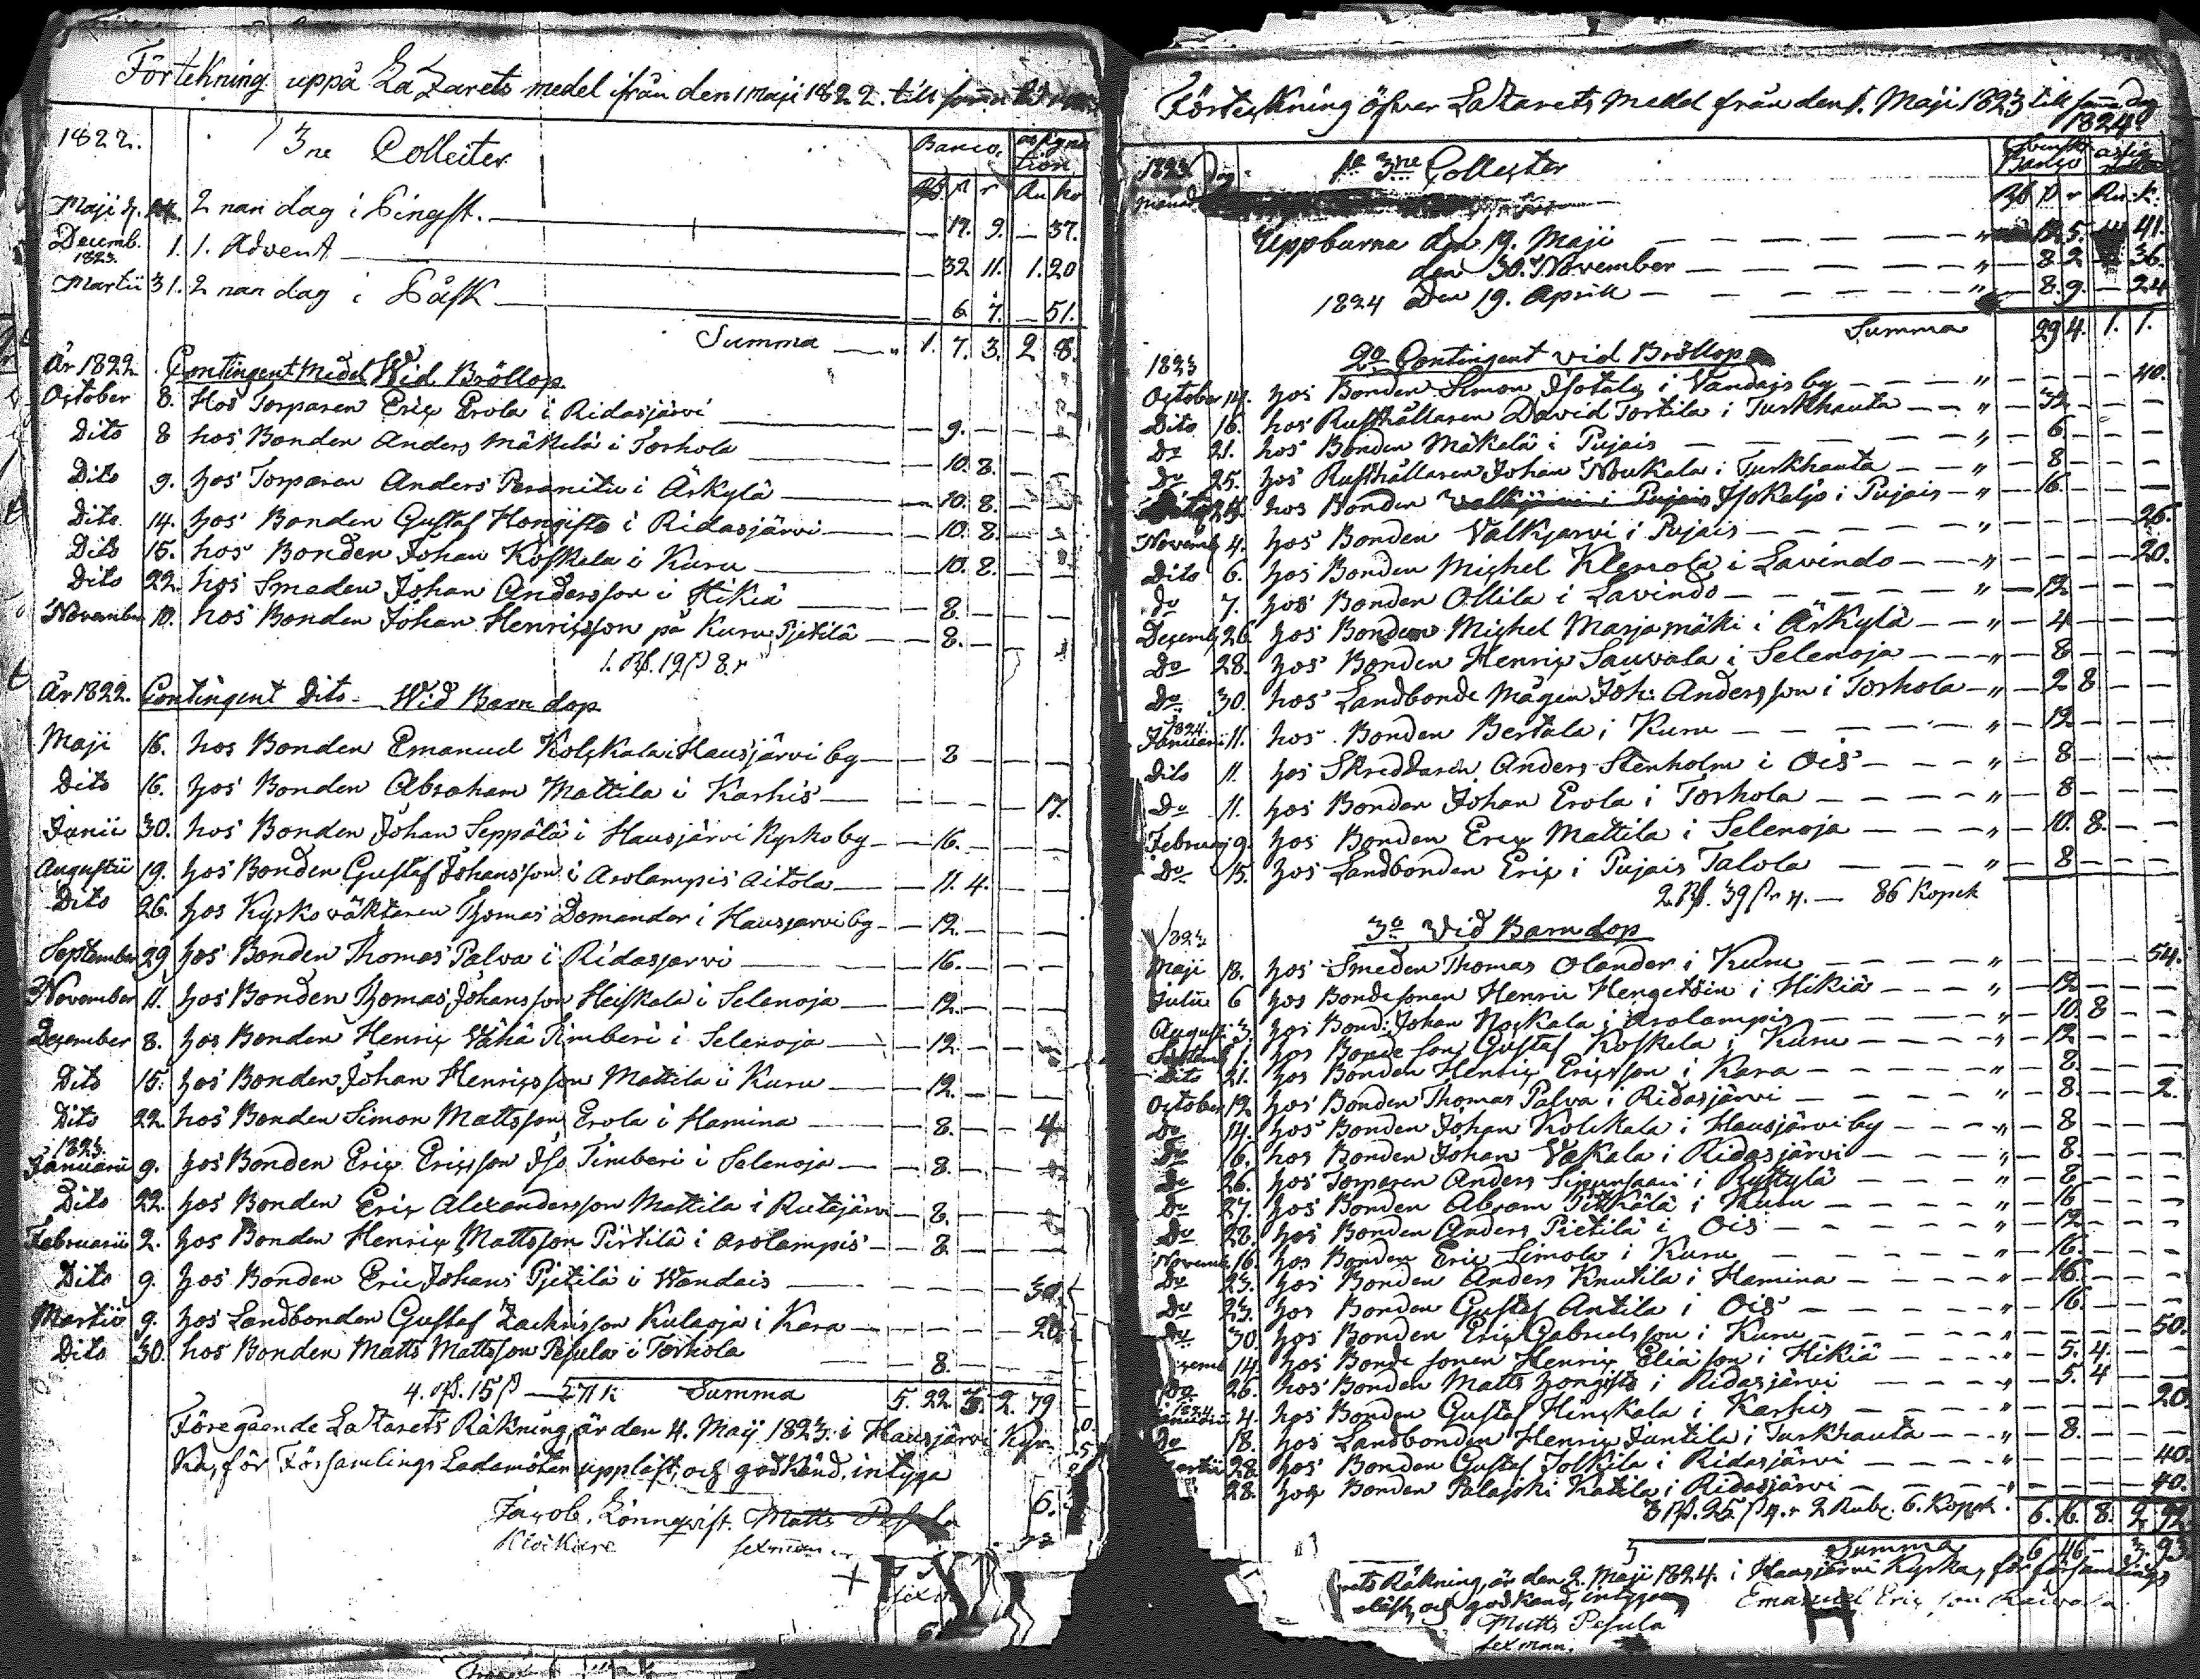 Förtekning uppå LaZarets medel ifrån den 1 Maji 1822. till samma
1822. 3ne Collecter Banco. assigna tion
Rd. ß r Ru Ko
Maji d. 2 nan dag i Pingst. — 19. 9. — 37.
Decemb. 1. 1. Advent — 32 11. 1. 20
1823.
Martii 31. 2 nan dag i Påsk — 6 7. — 51.
Summa — 1. 7. 3. 2 8.
År 1822. Contingent Medel Wid Bröllop
October 8. Hos Torparen Eric Erola i Ridasjärvi — 9. — — —
Dito 8 hos Bonden Anders Mäkelä i Torhola — 10. 8. — —
Dito 9. hos Torparen Anders i Äskylä — 10. 8. — —
Dito 14. hos Bonden Gustaf Hongisto i Ridasjärvi — 10. 8. — —
Dito 15. hos Bonden Johan Koskela i Kuru — 10. 8. — —
Dito 22. hos Smeden Johan Andersson i Hikiä — 8. — — —
November 10. hos Bonden Johan Henricsson på Kuru Pjetilä — 8. — — —
1. Rd. 19 ß 8. r
År 1822. Contingent Dito Wid Barn dop
Maji 16. hos Bonden Emanuel Kolckala i Hausjärvi by — 8 — — —
Dito 16. hos Bonden Abraham Mattila i Karhis — — — — 17.
Junii 30. hos Bonden Johan Seppälä i Hausjärvi Kyrko by — 16. — — —
Augustii 19. hos Bonden Gustaf Johansson i Arolampis Aitola — 11. 4. — —
Dito 26. hos Kyrko väktaren Thomas Domander i Hausjarvi by — 12. — — —
September 29 hos Bonden Thomas Palva i Ridasjarvi — 16. — — —
November 11. hos Bonden Thomas Johansson Heiskala i Selenoja — 12. — — —
December 8. hos Bonden Henric Vähä Timberi i Selenoja — 12. — — —
Dito 15. hos Bonden Johan Henricsson Mattila i Kuru — 12. — — —
Dito 22. hos Bonden Simon Mattsson Erola i Hamina — 8. — — 4
1823.
Januarii 9. hos Bonden Eric Ericsson Iso Timberi i Selenoja — 8. — — —
Dito 22. hos Bonden Eric Alexandersson Mattila i Rutajärvi — 8. — — —
Februarii 2. hos Bonden Henric Mattsson Pirtilä i Arolampis — 8. — — —
Dito 9. hos Bonden Eric Johans Pjetilä i Wandais — — — — 30.
Martii 9. hos Landbonden Gustaf Zachrisson Kulaoja i Kara — — — — 20.
Dito 30. hos Bonden Matts Mattsson Pesula i Torhola — 8. — — —
4. Rd. 15 ß — 71 k Summa 5. 22 3. 2. 79
Föregående LaZarets Räkning är den 4. Maij 1823. i Hausjärvi Kyr-
ka, för Församlings Ledamöten uppläst, och godkänd, intyga
Jacob Lönnqvist. Matts Pesula
Klåckare sexman
Förteckning öfver LaZarets Medel från den 1. Maji 1823 till samma dag
1824.
1823 Dag 1o 3ne Collecter Svenskt Banco assig
månad Rd ß r Ru. K.
Uppburna den 19. Maji — 12. 5. 41.
den 30. November — 8. 2 36.
1824 Den 19. Aprill — 8. 9. — 24
Summa 29 4. 1. 1.
1823 2o Contingent vid Bröllop
October 14. hos Bonden Simon Isotalo i Vandais by — — — — 40.
Dito 16. hos Rusthållaren David Tortila i Turkhauta — 32 — — —
Do 21. hos Bonden Mäkelä i Pujais — 6. — — —
Do 25. hos Rusthållaren Johan Noukala i Turkhauta — 8 — — —
hos Bonden Isokaljo i Pujais — 16. — — —
Novemb 4. hos Bonden Valkjarvi i Pujais — — — — 26.
Dito 6. hos Bonden Michel Klemola i Lavindo — — — — 20.
do 7. hos Bonden Ollila i Lavindo — 12 — — —
Decemb 26 hos Bonden Michel Marjamäki i Äskylä — 4 — — —
Do 28. hos Bonden Henric Sauvala i Selenoja — 8 — — —
Do 30. hos Landbonde Mågen Joh: Andersson i Torhola — 2 8 — —
1824.
Januarii 11. hos Bonden Bertala i Kuru — 12 — — —
Dito 11. hos Skreddaren Anders Stenholm i Ois — 8 — — —
Do 11. hos Bonden Johan Erola i Torhola — 8 — — —
Februarij 9. hos Bonden Eric Mattila i Selenoja — 10. 8. — —
Do 15. hos Landbonden Eric i Pujais Talola — 8 — — —
2 Rd. 39 ß r 4. — 86 Kopek
1823 3o Vid Barndop
Maji 18. hos Smeden Thomas Olander i Kuru — — — — 54.
Julii 6 hos Bondesonen Henric Hengetöin i Hikiä — 12 — — —
August: 3. hos Bond: Johan Noskala i Arolampis — 10. 8 — —
1. hos Bonde son Gustaf Koskela i Kuru — 12 — — —
Dito 21. hos Bonden Henric Ericsson i Kara — 8. — — —
October 12. hos Bonden Thomas Palva i Ridasjärvi — 8. — — 2.
Do 14. hos Bonden Johan Kolckala i Hausjärvi by — 8 — — —
Do 16. hos Bonden Johan Vakala i Ridasjärvi — 8. — — —
Do 26. hos Torparen Anders i Ryttylä — 8 — — —
Do 27. hos Bonden Abram Pitkälä i Kuru — 16 — — —
Do 28. hos Bonden Anders Pietilä i Ois — 12 — — —
Novemb 16. hos Bonden Eric Simola i Kuru — 16. — — —
Do 23. hos Bonden Anders Knutila i Hamina — 16. — — —
Do 23. hos Bonden Gustaf Antila i Ois — 16. — — —
Do 30. hos Bonden Eric Gabrielsson i Kuru — — — — 50.
14. hos Bonde sonen Henric Elia son i Hikiä — 5. 4. — —
Do 26. hos Bonden Matts Hongisto i Ridasjärvi — 5. 4 — —
1824
4. hos Bonden Gustaf Hinckala i Karhis — — — — 20
Do 18. hos Landbonden Henric Juntila i Turkhauta — 8. — — —
28. hos Bonden Gustaf Jolkila i Ridasjärvi — — — — 40.
28. hos Bonden Katila i Ridasjärvi — — — — 40.
3 Rd. 25 ß 4. r 2 Rub. 6. Kopek. 6. 16. 8. 2. 92
Summa 6 46 — 3. 93
rets Räkning, är den 2. Maji 1824. i Hausjärvi Kyrka, för församlings
läst, och godkänd, intyga Emanuel Eric son
Matts Pesula
sexman.